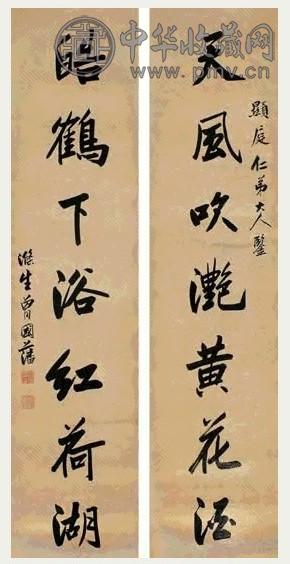 中华收藏网
www.pmv.cn
天風吹灔黃花酒
顯庭仁弟大人鑒
皓鶴下浴紅荷湖
滌生曾國藩